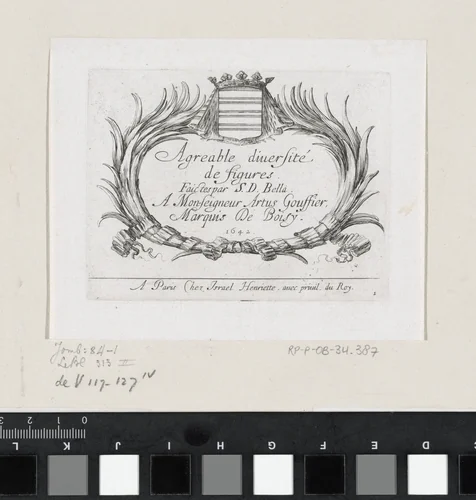 Agreable diuersité
de figures
Faictes par S. D. Bella
A Monseigneur Artus Gouffier,
Marquis De Boisy.
1642
A Paris Chez Israel Henriette. auec priuil. du Roy.
1
RP-P-OB-34.387
Jomb: 84-1
313 II
de V 119-127 IV
0 1 2 3
L K J I H G F E D C